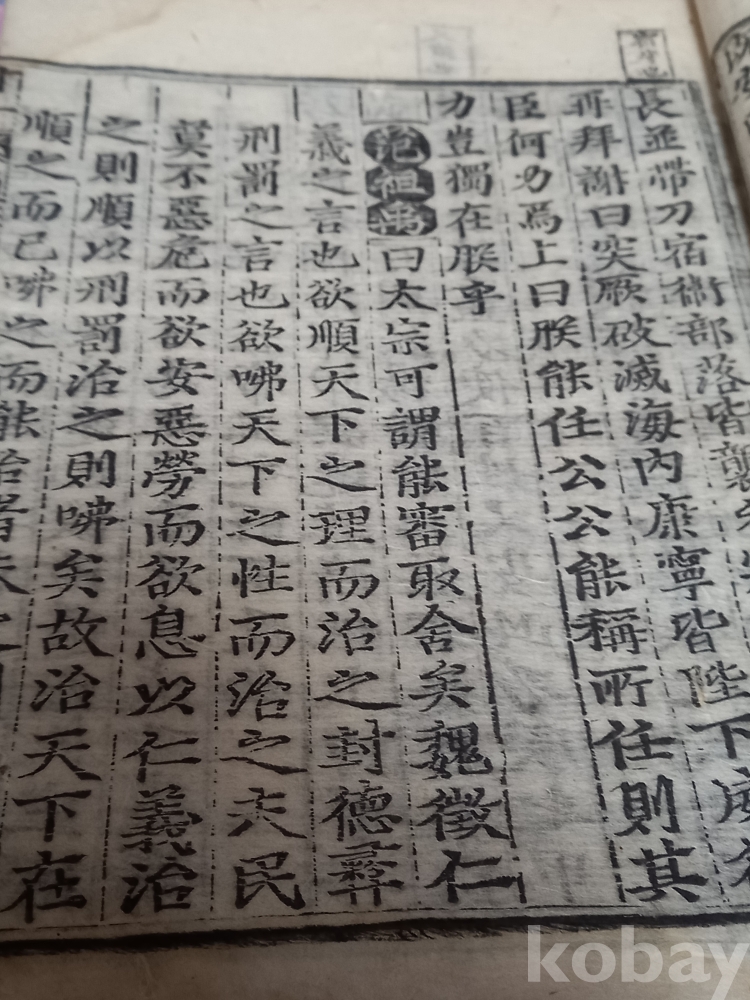 長並帶刀宿衛部落皆襲
再拜謝曰突厥破滅海內康寧皆陛下威
臣何力焉上曰朕能任公公能稱所任則其
力豈獨在朕乎
范祖禹曰太宗可謂能審取舍矣魏徵仁
義之言也欲順天下之理而治之封德彛
刑罰之言也欲咈天下之性而治之夫民
莫不惡危而欲安惡勞而欲息以仁義治
之則順以刑罰治之則咈矣故治天下在
順之而已咈之而能治者未之
kobay